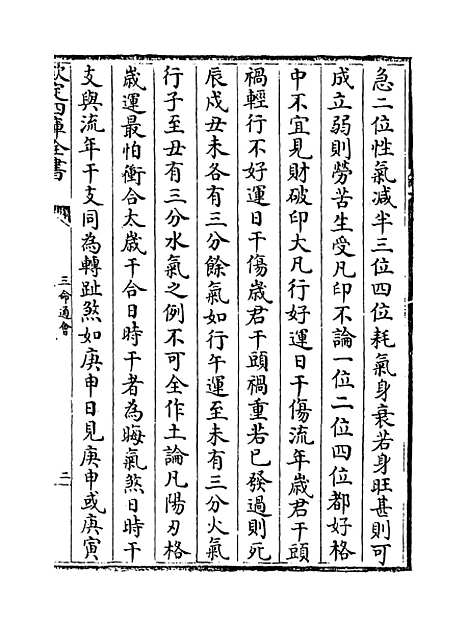 急二位性氣减半三位四位耗氣身衰若身旺甚則可
成立弱則勞苦生受凡印不論一位二位四位都好格
中不宜見財破印大凡行好運日干傷流年歲君干頭
禍輕行不好運日干傷歲君干頭禍重若已發過則死
辰戍丑未各有三分餘氣如行午運至未有三分火氣
行子至丑有三分水氣之例不可全作土論凡陽刃格
歲運最怕衝合太歲干合日時干者為晦氣煞日時干
支與流年干支同為轉趾煞如庚申日見庚申或庚寅
欽定四庫全書
三命通會
二